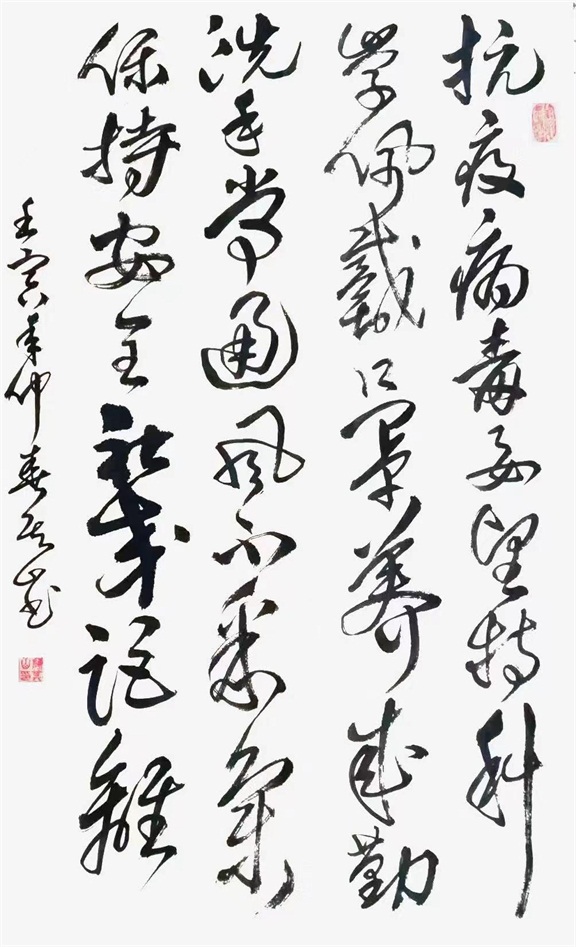 抗疫病毒要坚持科
学佩戴口罩养成勤
洗手常通风不集
保持安全社距離
壬寅年仲春